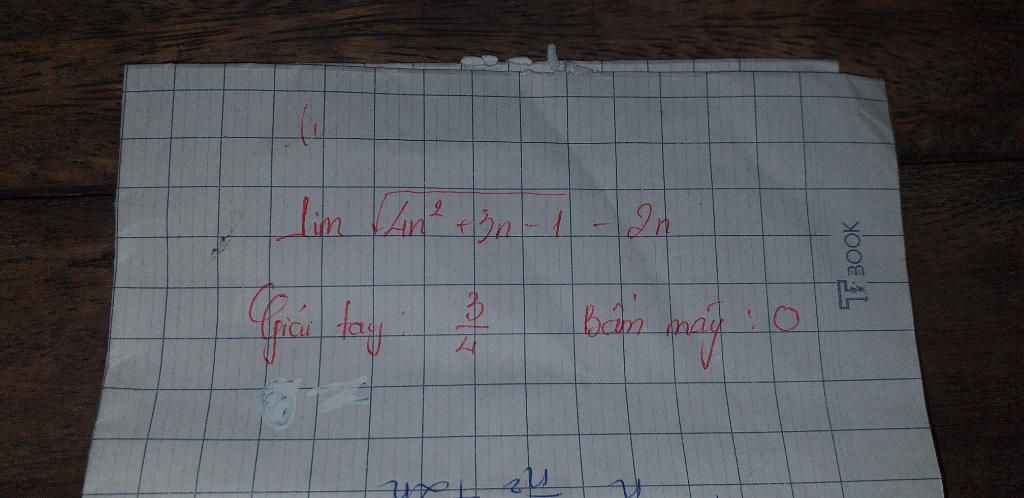 lim √4n² + 3n - 1 - 2n
Giải tay: 3/4 Bấm máy: 0
BOOK